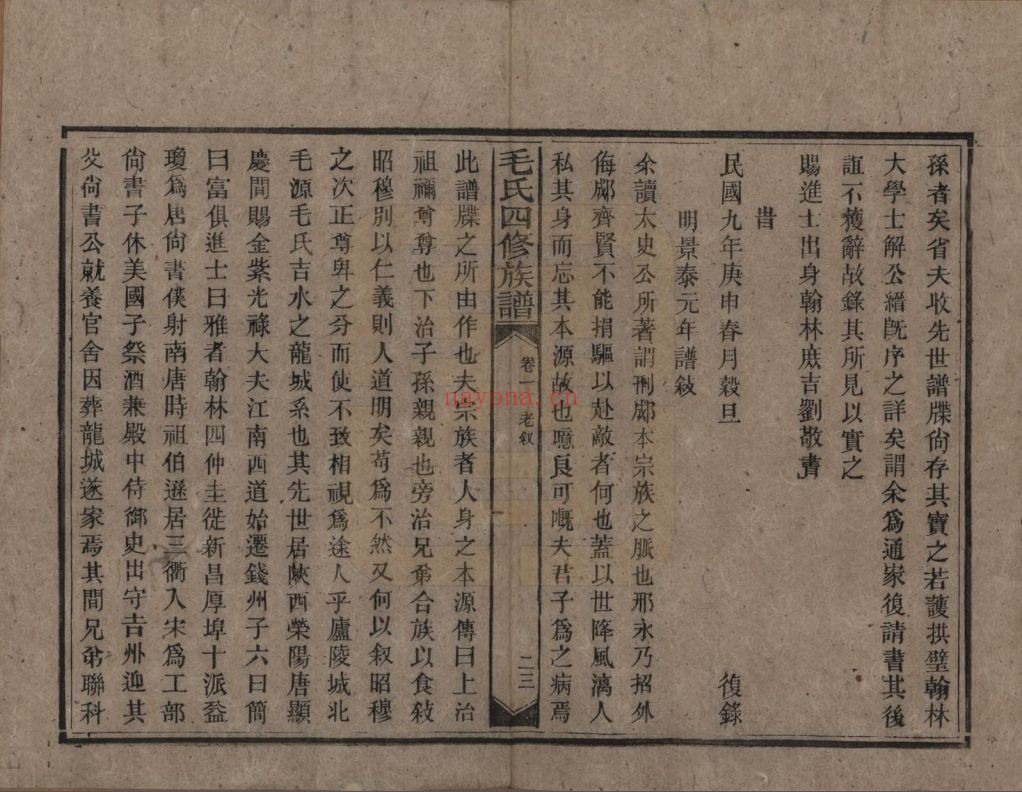 孫者矣省夫收先世譜牒尙存其寶之若護拱璧翰林
大學士解公縉旣序之詳矣謂余爲通家復請書其後
誼不獲辭故錄其所見以實之
賜進士出身翰林庶吉劉敬書
旹
民國九年庚申春月穀旦 復錄
明景泰元年譜敍
余讀太史公所著謂刑鄺本宗族之脈也邪永乃招外
侮鄺齊賢不能捐驅以赴敵者何也蓋以世降風漓人
私其身而忘其本源故也噫良可嘅夫君子爲之病焉
毛氏四修族譜
卷一 老叙
二三
此譜牒之所由作也夫宗族者人身之本源傳曰上治
祖禰尊尊也下治子孫親親也旁治兄弟合族以食敍
昭穆別以仁義則人道明矣苟爲不然又何以叙昭穆
之次正尊卑之分而使不致相視爲途人乎廬陵城北
毛源毛氏吉水之龍城系也其先世居陜西榮陽唐顯
慶間賜金紫光祿大夫江南西道始遷錢州子六曰簡
曰富俱進士曰雅者翰林四仲圭徙新昌厚埠十派益
瓊爲唐尙書僕射南唐時祖伯遜居三衢入宋爲工部
尙書子休美國子祭酒兼殿中侍御史出守吉州迎其
父尙書公就養官舍因葬龍城遂家焉其間兄弟聯科
nayona.cn